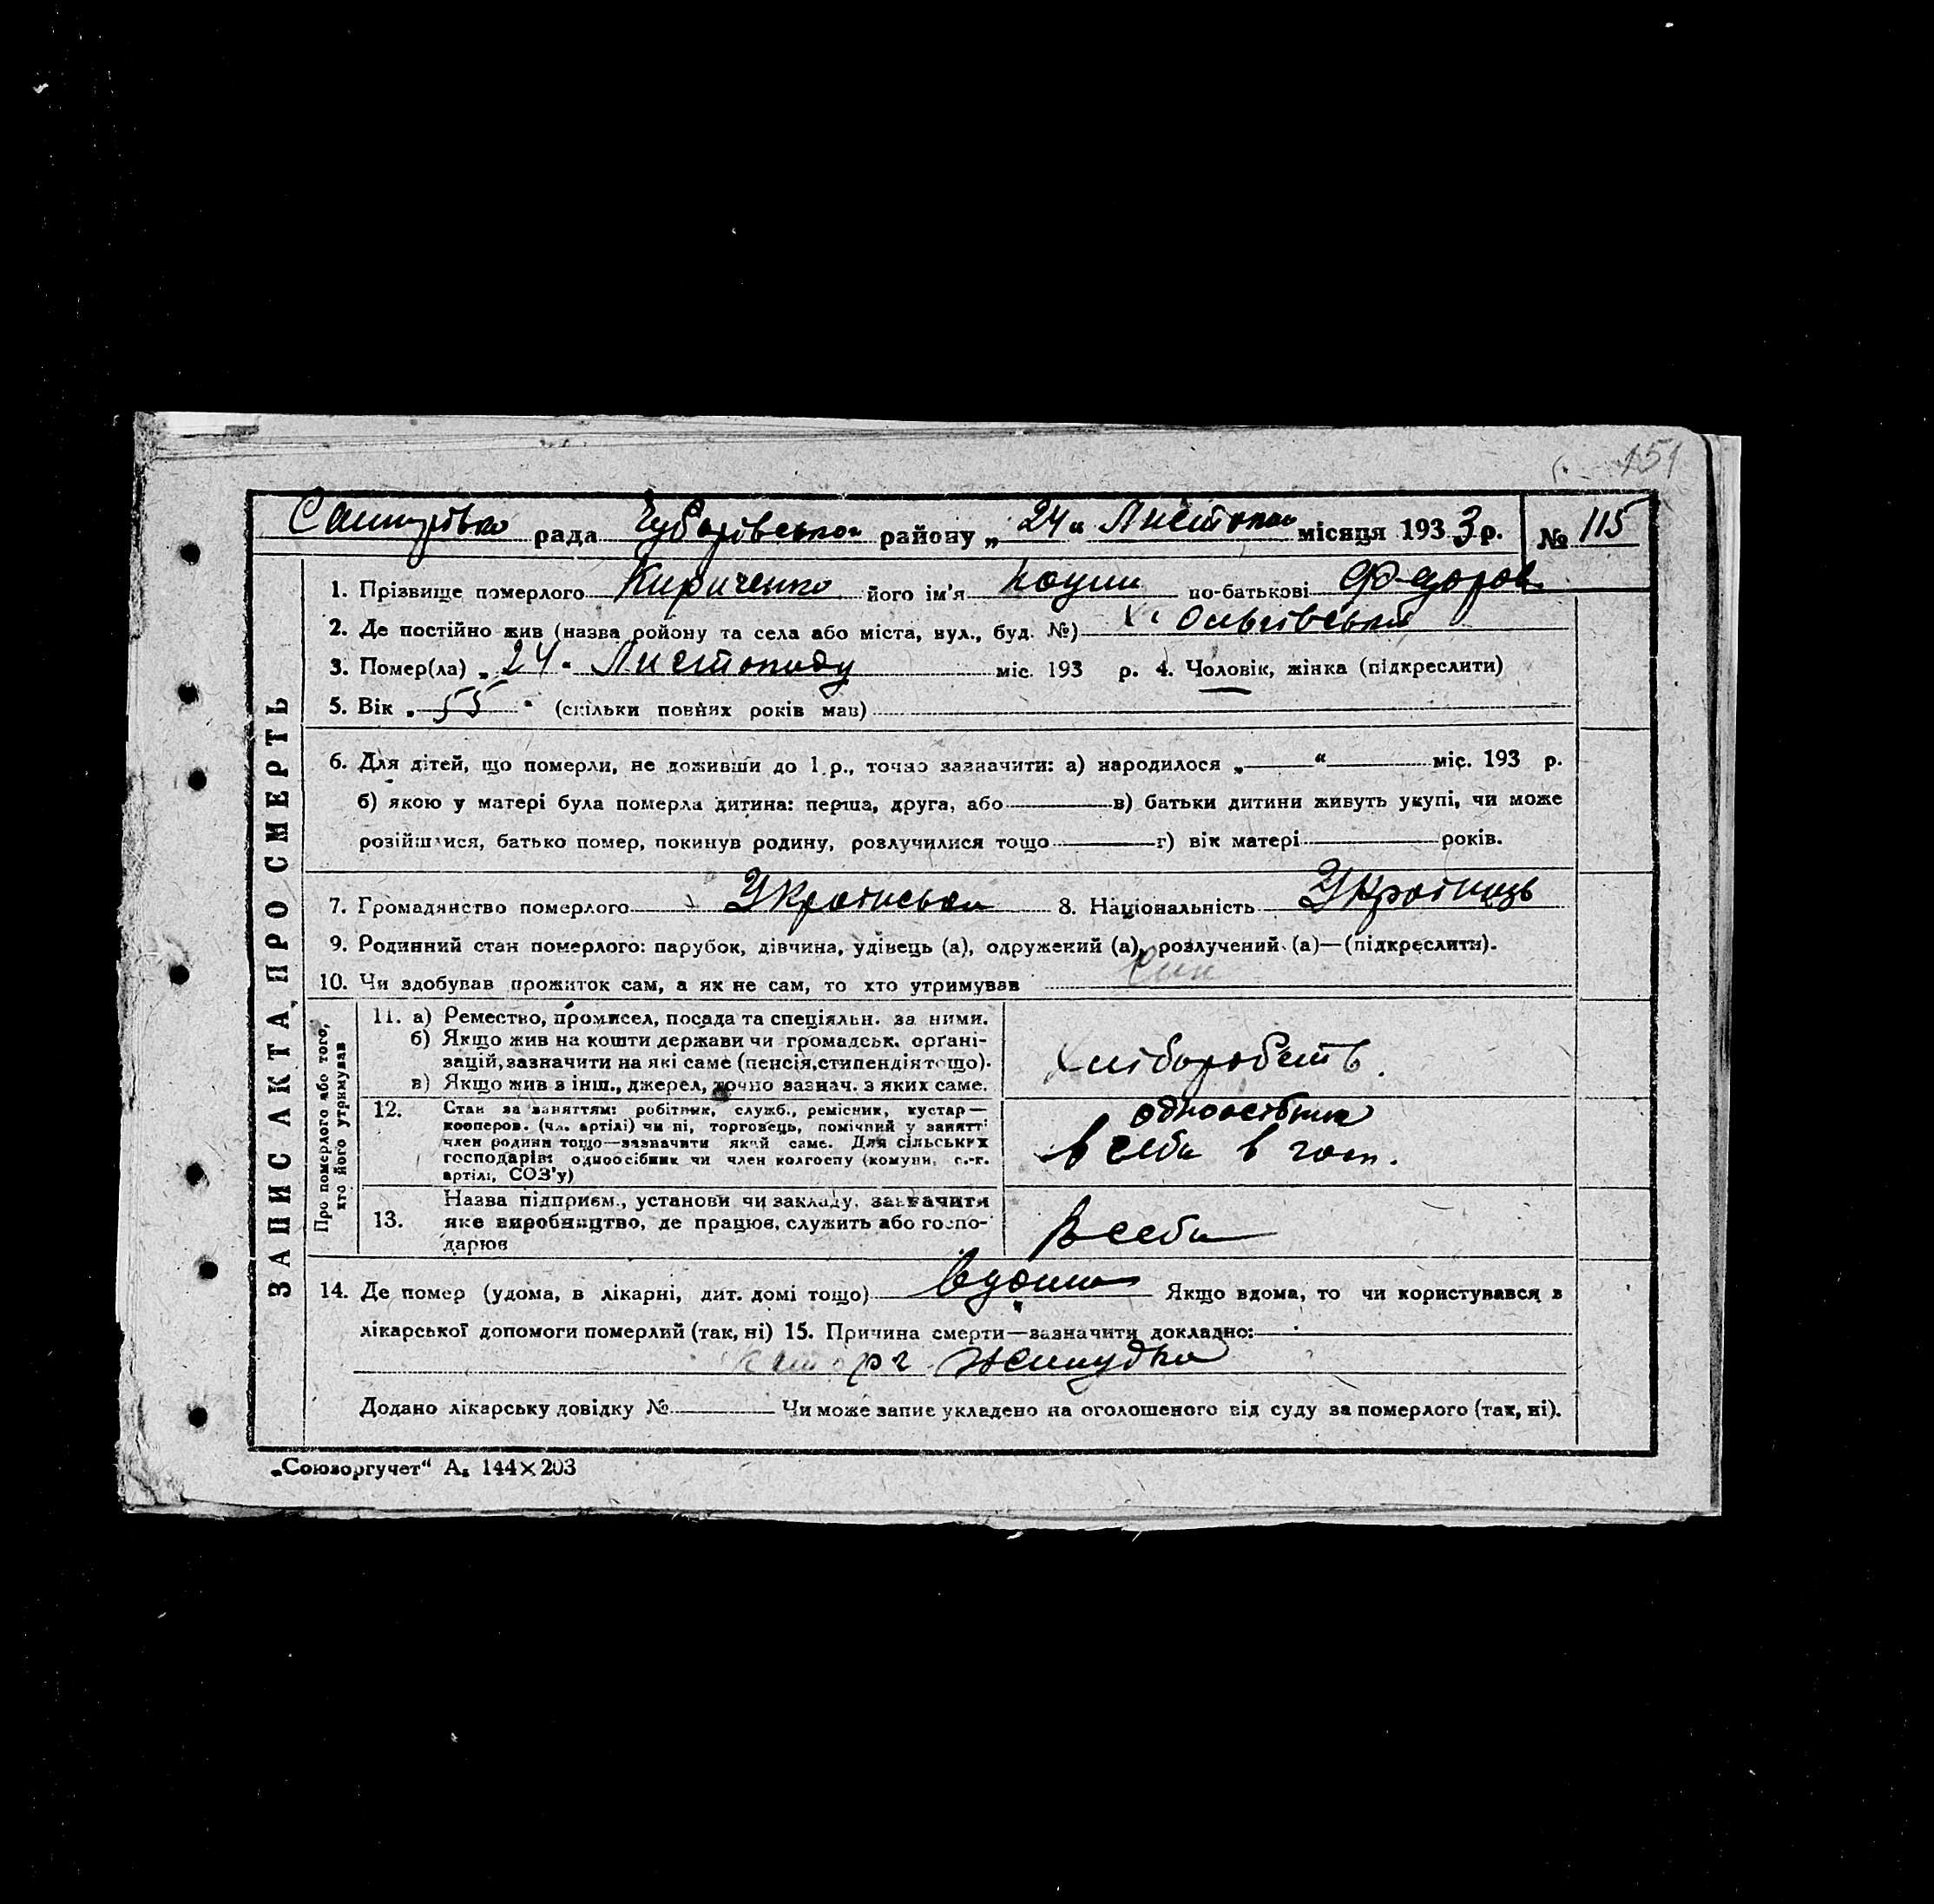 151
рада Чубарівська району „24" Листопа місяця 1933 р. № 115
ЗАПИС АКТА ПРО СМЕРТЬ
1. Прізвище померлого Кириченко його ім'я по-батькові Федоров
2. Де постійно жив (назва ройону та села або міста, вул., буд. №) Х. Ольгівський
3. Помер(ла) „24" Листопаду міс. 193 р. 4. Чоловік, жінка (підкреслити)
5. Вік „55" (скільки повних років мав)
6. Для дітей, що померли, не доживши до 1 р., точно зазначити: а) народилося „—" — міс. 193 р.
б) якою у матері була померла дитина: перша, друга, або — в) батьки дитини живуть укупі, чи може
розійшлися, батько помер, покинув родину, розлучилися тощо — г) вік матері — років.
7. Громадянство померлого Українська 8. Національність Українець
9. Родинний стан померлого: парубок, дівчина, удівець (а), одружений (а), розлучений (а)—(підкреслити).
10. Чи здобував прожиток сам, а як не сам, то хто утримував Син
Про померлого або того,
хто його утримував
11. а) Ремество, промисел, посада та спеціяльн. за ними.
б) Якщо жив на кошти держави чи громадськ. орґані-
зацій, зазначити на які саме (пенсія, стипендія тощо).
в) Якщо жив з інш., джерел, точно зазнач. з яких саме.
Хліборобств.
12. Стан за заняттям: робітник, служб., ремісник, кустар—
кооперов. (чл. артілі) чи ні, торговець, помічний у занятті
член родини тощо—зазначити який саме. Для сільських
господарів: одноосібник чи член колгоспу (комуни, с.-г.
артілі, СОЗ'у)
одноосібник
в себе в госп.
13. Назва підприєм., установи чи закладу, зазначити
яке виробництво, де працює, служить або госпо-
дарює
в себе
14. Де помер (удома, в лікарні, дит. домі тощо) вдома Якщо вдома, то чи користувався в
лікарської допомоги померлий (так, ні) 15. Причина смерти—зазначити докладно:
желудка
Додано лікарську довідку № — Чи може запис укладено на оголошеного від суду за померлого (так, ні).
„Союзоргучет" А5 144×203